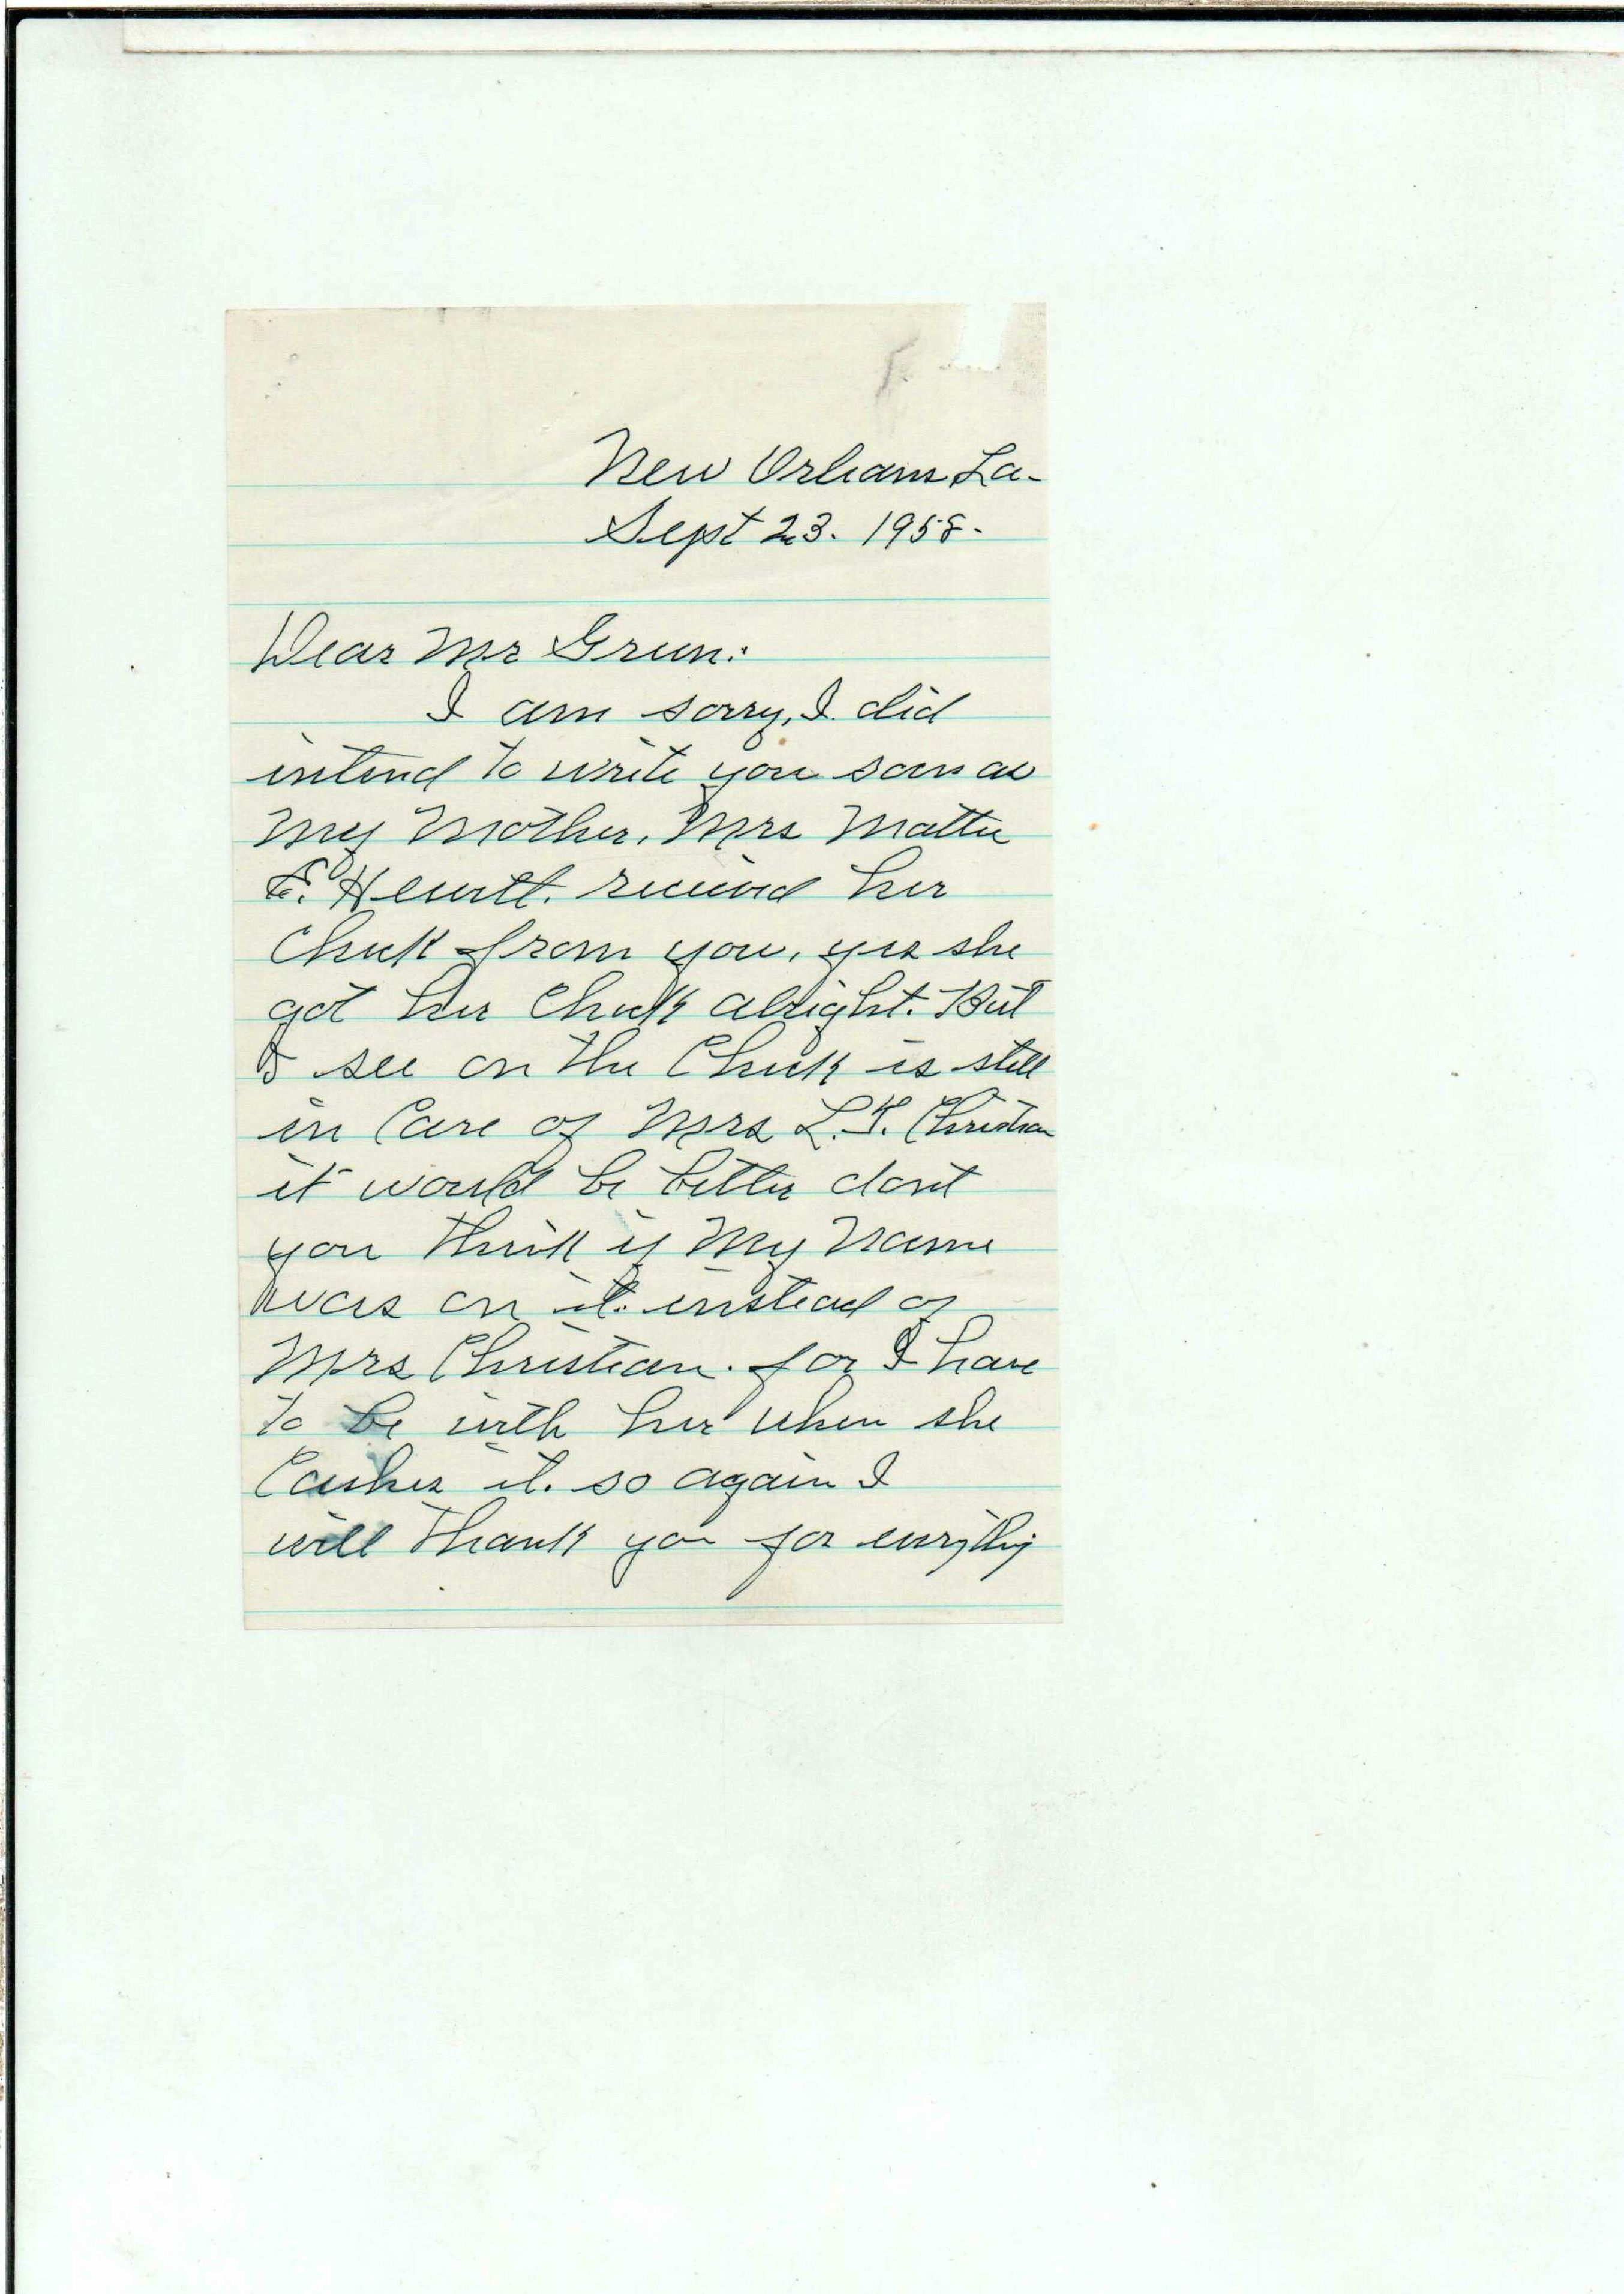 New Orleans La-
Sept 23. 1958-
Dear Mr Green:
I am sorry, I did
intend to write you soon as
My Mother, Mrs Mattie
E. Hewitt. received her
Check from you, yes she
got her Check alright. But
I see on the Check is still
in Care of Mrs L. Y. Christian
it would be better dont
you think if My Name
was on it. instead of
Mrs Christian. for I have
to be with her when she
Cashes it. so again I
will thank you for everything